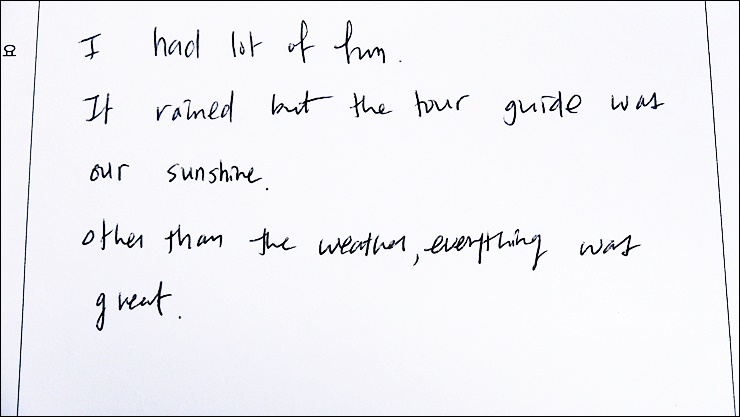 요
I had lot of fun.
It rained but the tour guide was
our sunshine.
other than the weather, everything was
great.